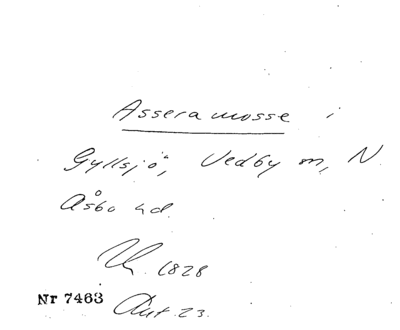 Asseramosse i
Gyllsjö, Vedby m, N
Åsbo hd.
Uh. 1828
Nr 7463 Aut. 23.